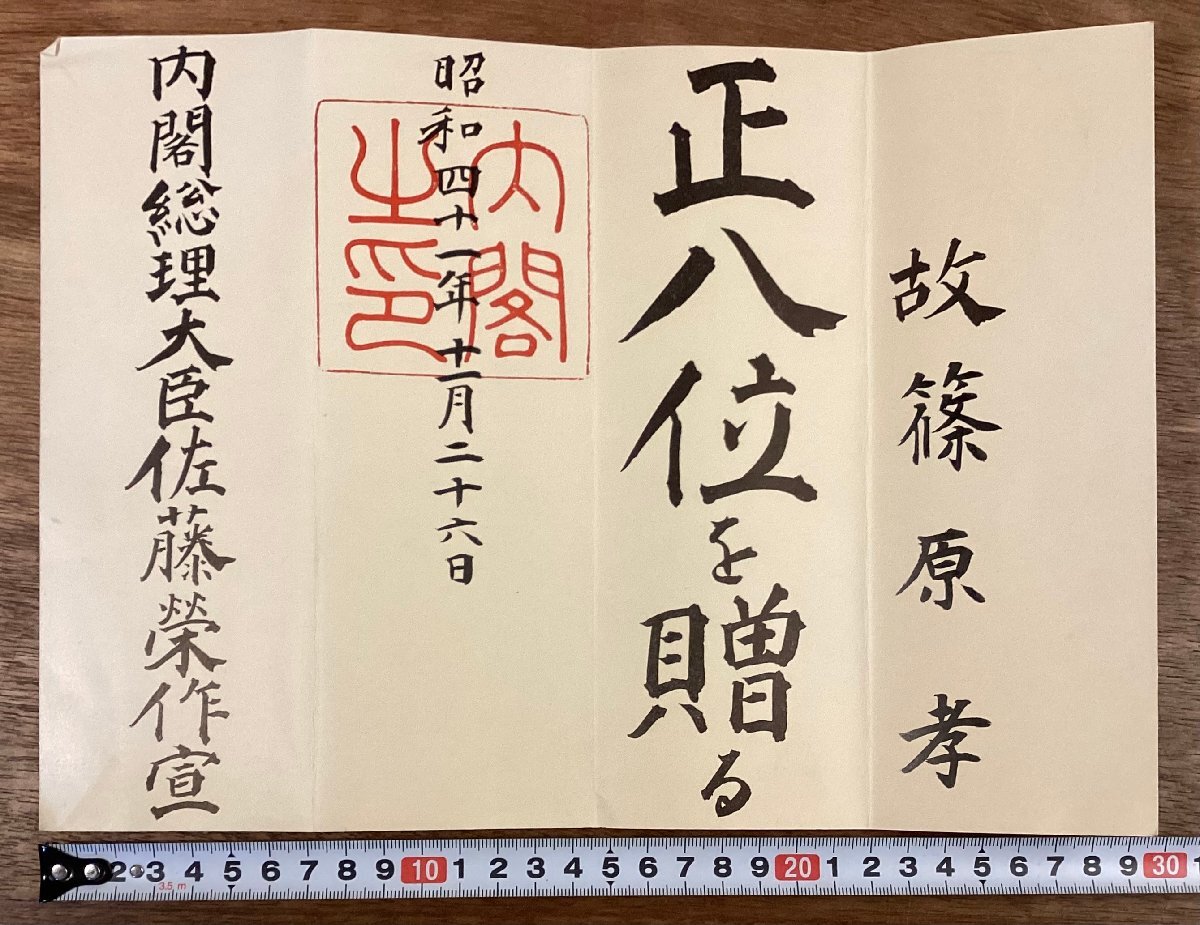 故篠原孝
正八位を贈る
昭和四十一年十一月二十六日
内閣之印
内閣総理大臣佐藤榮作宣
2 3 4 5 6 7 8 9 10 1 2 3 4 5 6 7 8 9 20 1 2 3 4 5 6 7 8 9 30 1
3.5 m